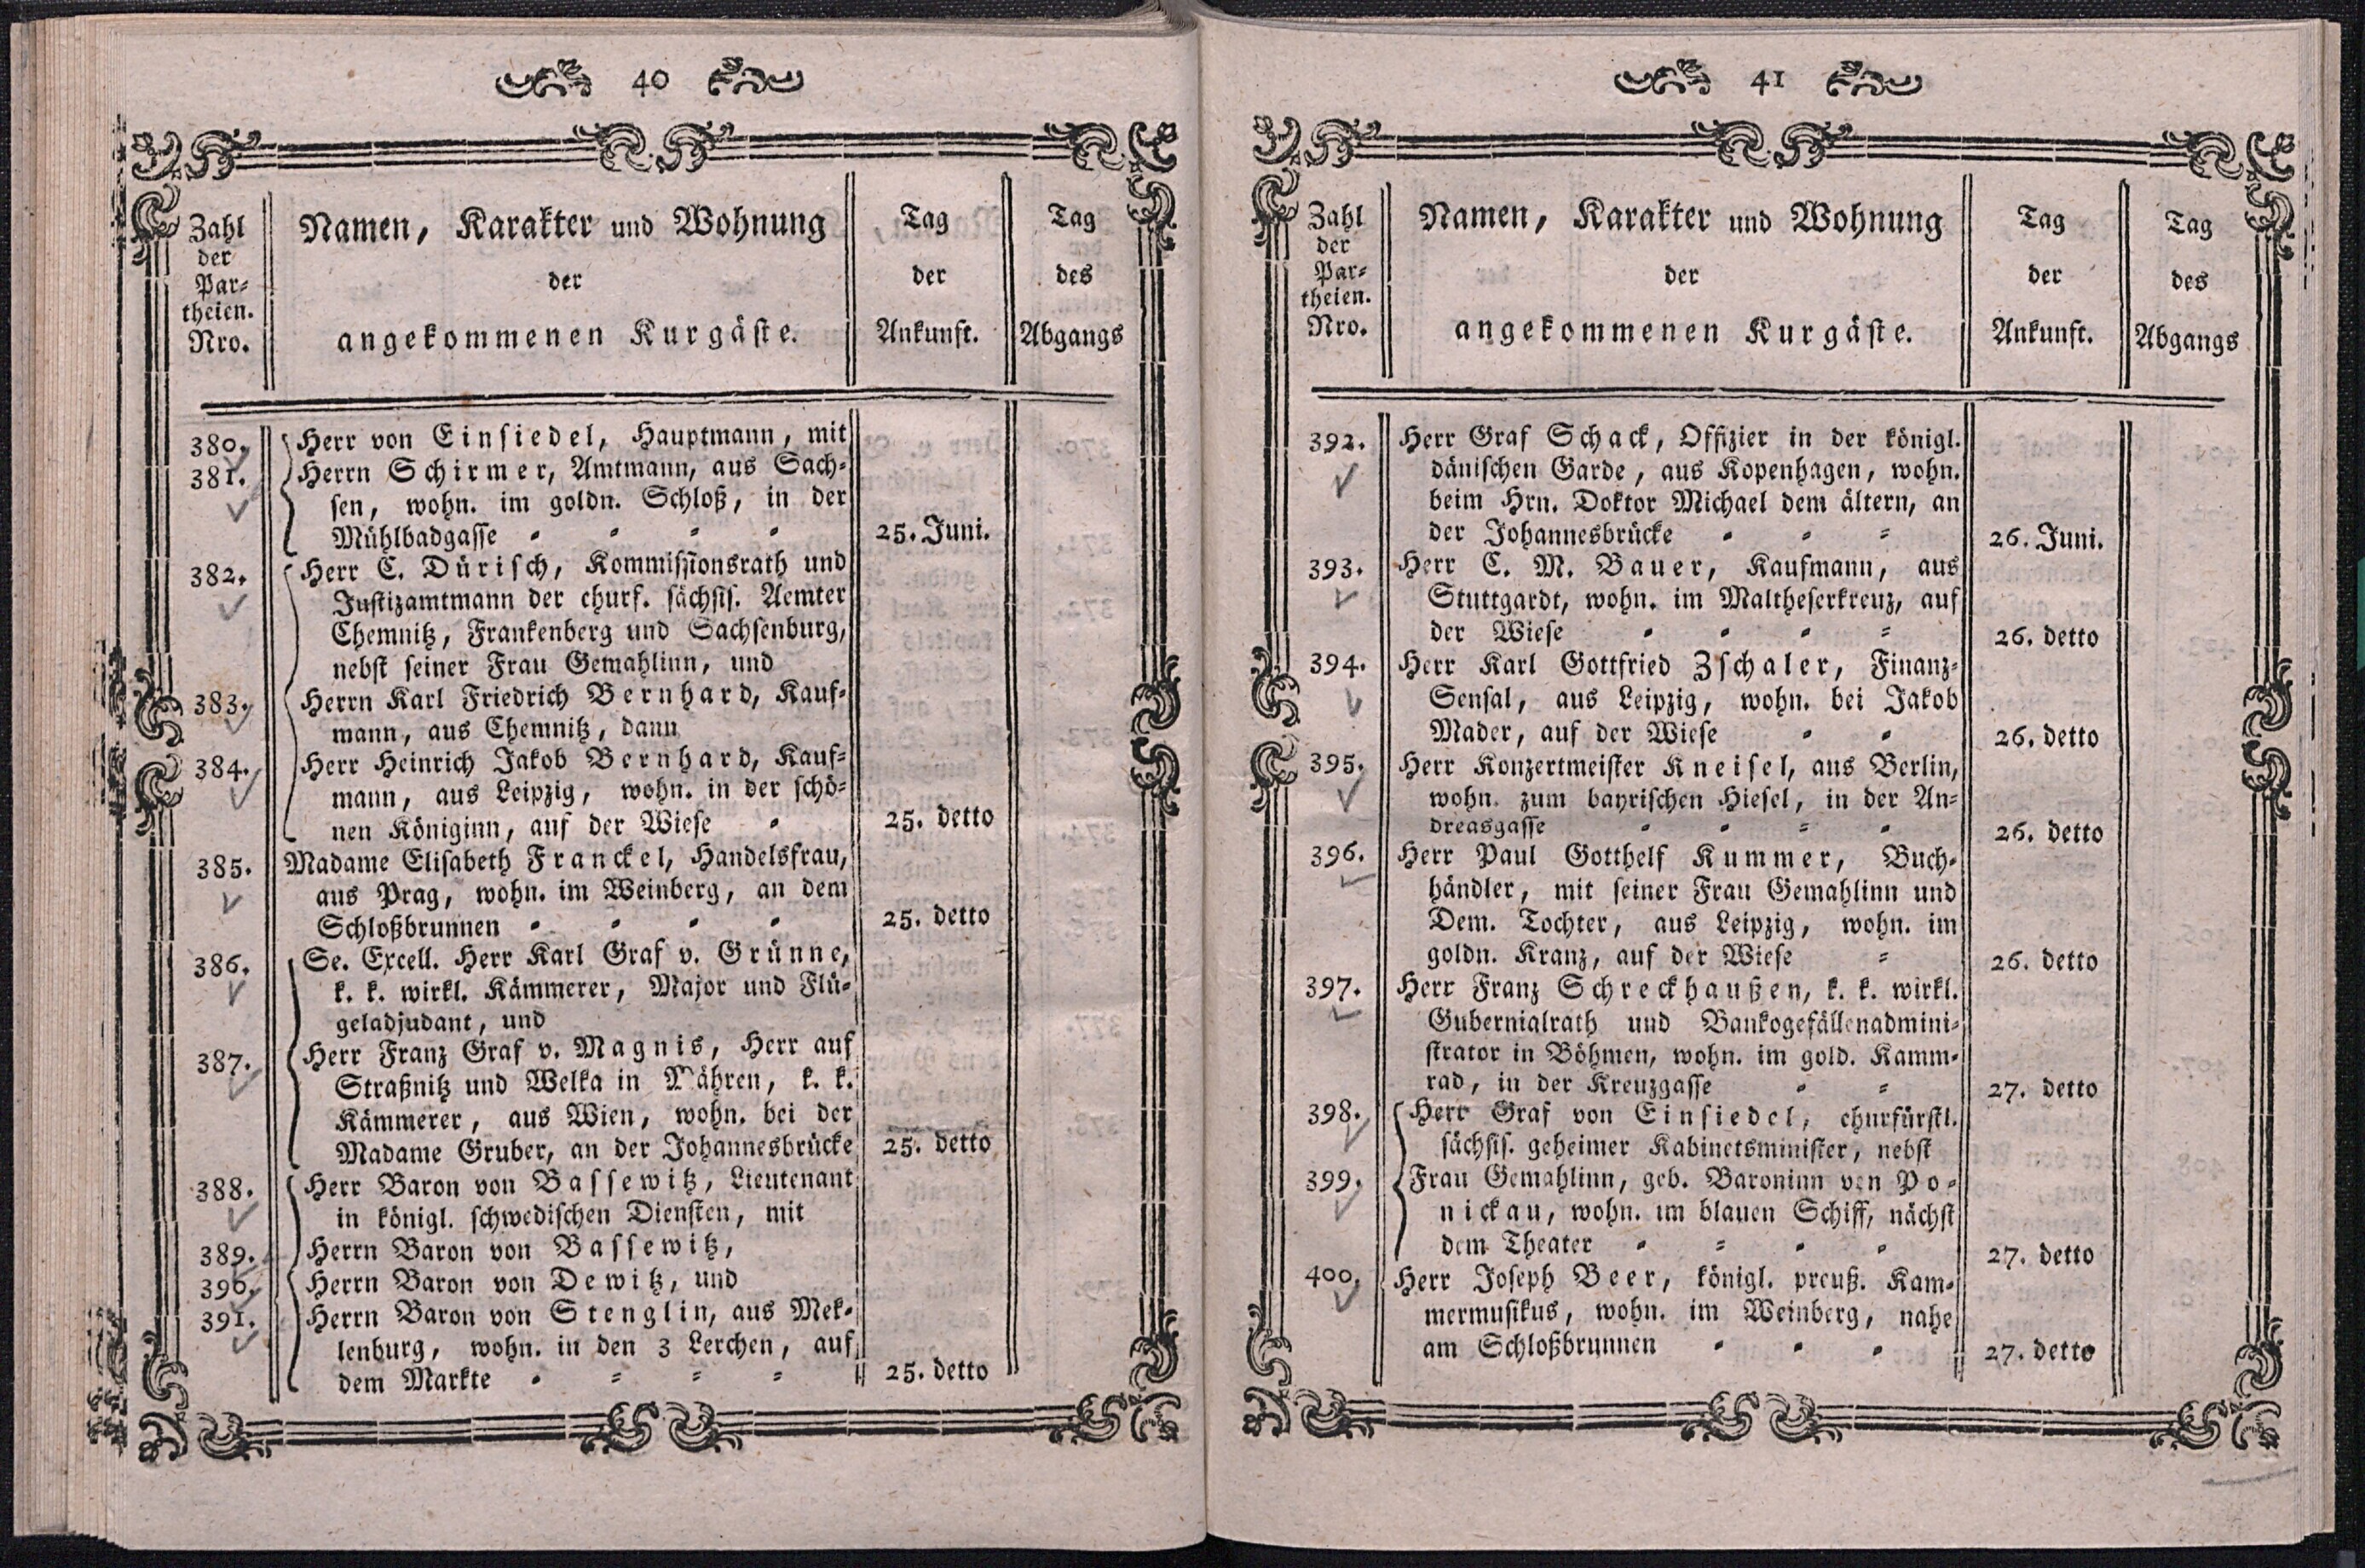 40
Zahl der Par= theien. Nro.
Namen, Karakter und Wohnung
der
angekommenen Kurgäste.
Tag der Ankunft.
Tag des Abgangs
380. Herr von Einsiedel, Hauptmann, mit
381. Herrn Schirmer, Amtmann, aus Sach=
sen, wohn. im goldn. Schloß, in der
Mühlbadgasse = = = = 25. Juni.
382. Herr C. Dürisch, Kommissionsrath und
Justizamtmann der churf. sächsis. Aemter
Chemnitz, Frankenberg und Sachsenburg,
nebst seiner Frau Gemahlinn, und
383. Herrn Karl Friedrich Bernhard, Kauf=
mann, aus Chemnitz, dann
384. Herr Heinrich Jakob Bernhard, Kauf=
mann, aus Leipzig, wohn. in der schö=
nen Königinn, auf der Wiese = 25. detto
385. Madame Elisabeth Franckel, Handelsfrau,
aus Prag, wohn. im Weinberg, an dem
Schloßbrunnen = = = = 25. detto
386. Se. Excell. Herr Karl Graf v. Grünne,
k. k. wirkl. Kämmerer, Major und Flü=
geladjudant, und
387. Herr Franz Graf v. Magnis, Herr auf
Straßnitz und Welka in Mähren, k. k.
Kämmerer, aus Wien, wohn. bei der
Madame Gruber, an der Johannesbrücke 25. detto
388. Herr Baron von Bassewitz, Lieutenant
in königl. schwedischen Diensten, mit
389. Herrn Baron von Bassewitz,
390. Herrn Baron von Dewitz, und
391. Herrn Baron von Stenglin, aus Mek=
lenburg, wohn. in den 3 Lerchen, auf
dem Markte = = = = 25. detto
41
Zahl der Par= theien. Nro.
Namen, Karakter und Wohnung
der
angekommenen Kurgäste.
Tag der Ankunft.
Tag des Abgangs
392. Herr Graf Schack, Offizier in der königl.
dänischen Garde, aus Kopenhagen, wohn.
beim Hrn. Doktor Michael dem ältern, an
der Johannesbrücke = = = 26. Juni.
393. Herr C. M. Bauer, Kaufmann, aus
Stuttgardt, wohn. im Maltheserkreuz, auf
der Wiese = = = = 26. detto
394. Herr Karl Gottfried Zschaler, Finanz=
Sensal, aus Leipzig, wohn. bei Jakob
Mader, auf der Wiese = = 26. detto
395. Herr Konzertmeister Kneisel, aus Berlin,
wohn. zum bayrischen Hiesel, in der An=
dreasgasse = = = = 26. detto
396. Herr Paul Gotthelf Kummer, Buch=
händler, mit seiner Frau Gemahlinn und
Dem. Tochter, aus Leipzig, wohn. im
goldn. Kranz, auf der Wiese = 26. detto
397. Herr Franz Schreckhaußen, k. k. wirkl.
Gubernialrath und Bankogefällenadmini=
strator in Böhmen, wohn. im gold. Kamm=
rad, in der Kreuzgasse = = 27. detto
398. Herr Graf von Einsiedel, churfürstl.
sächsis. geheimer Kabinetsminister, nebst
399. Frau Gemahlinn, geb. Baroninn von Po=
nickau, wohn. im blauen Schiff, nächst
dem Theater = = = = 27. detto
400. Herr Joseph Beer, königl. preuß. Kam=
mermusikus, wohn. im Weinberg, nahe
am Schloßbrunnen = = = 27. detto